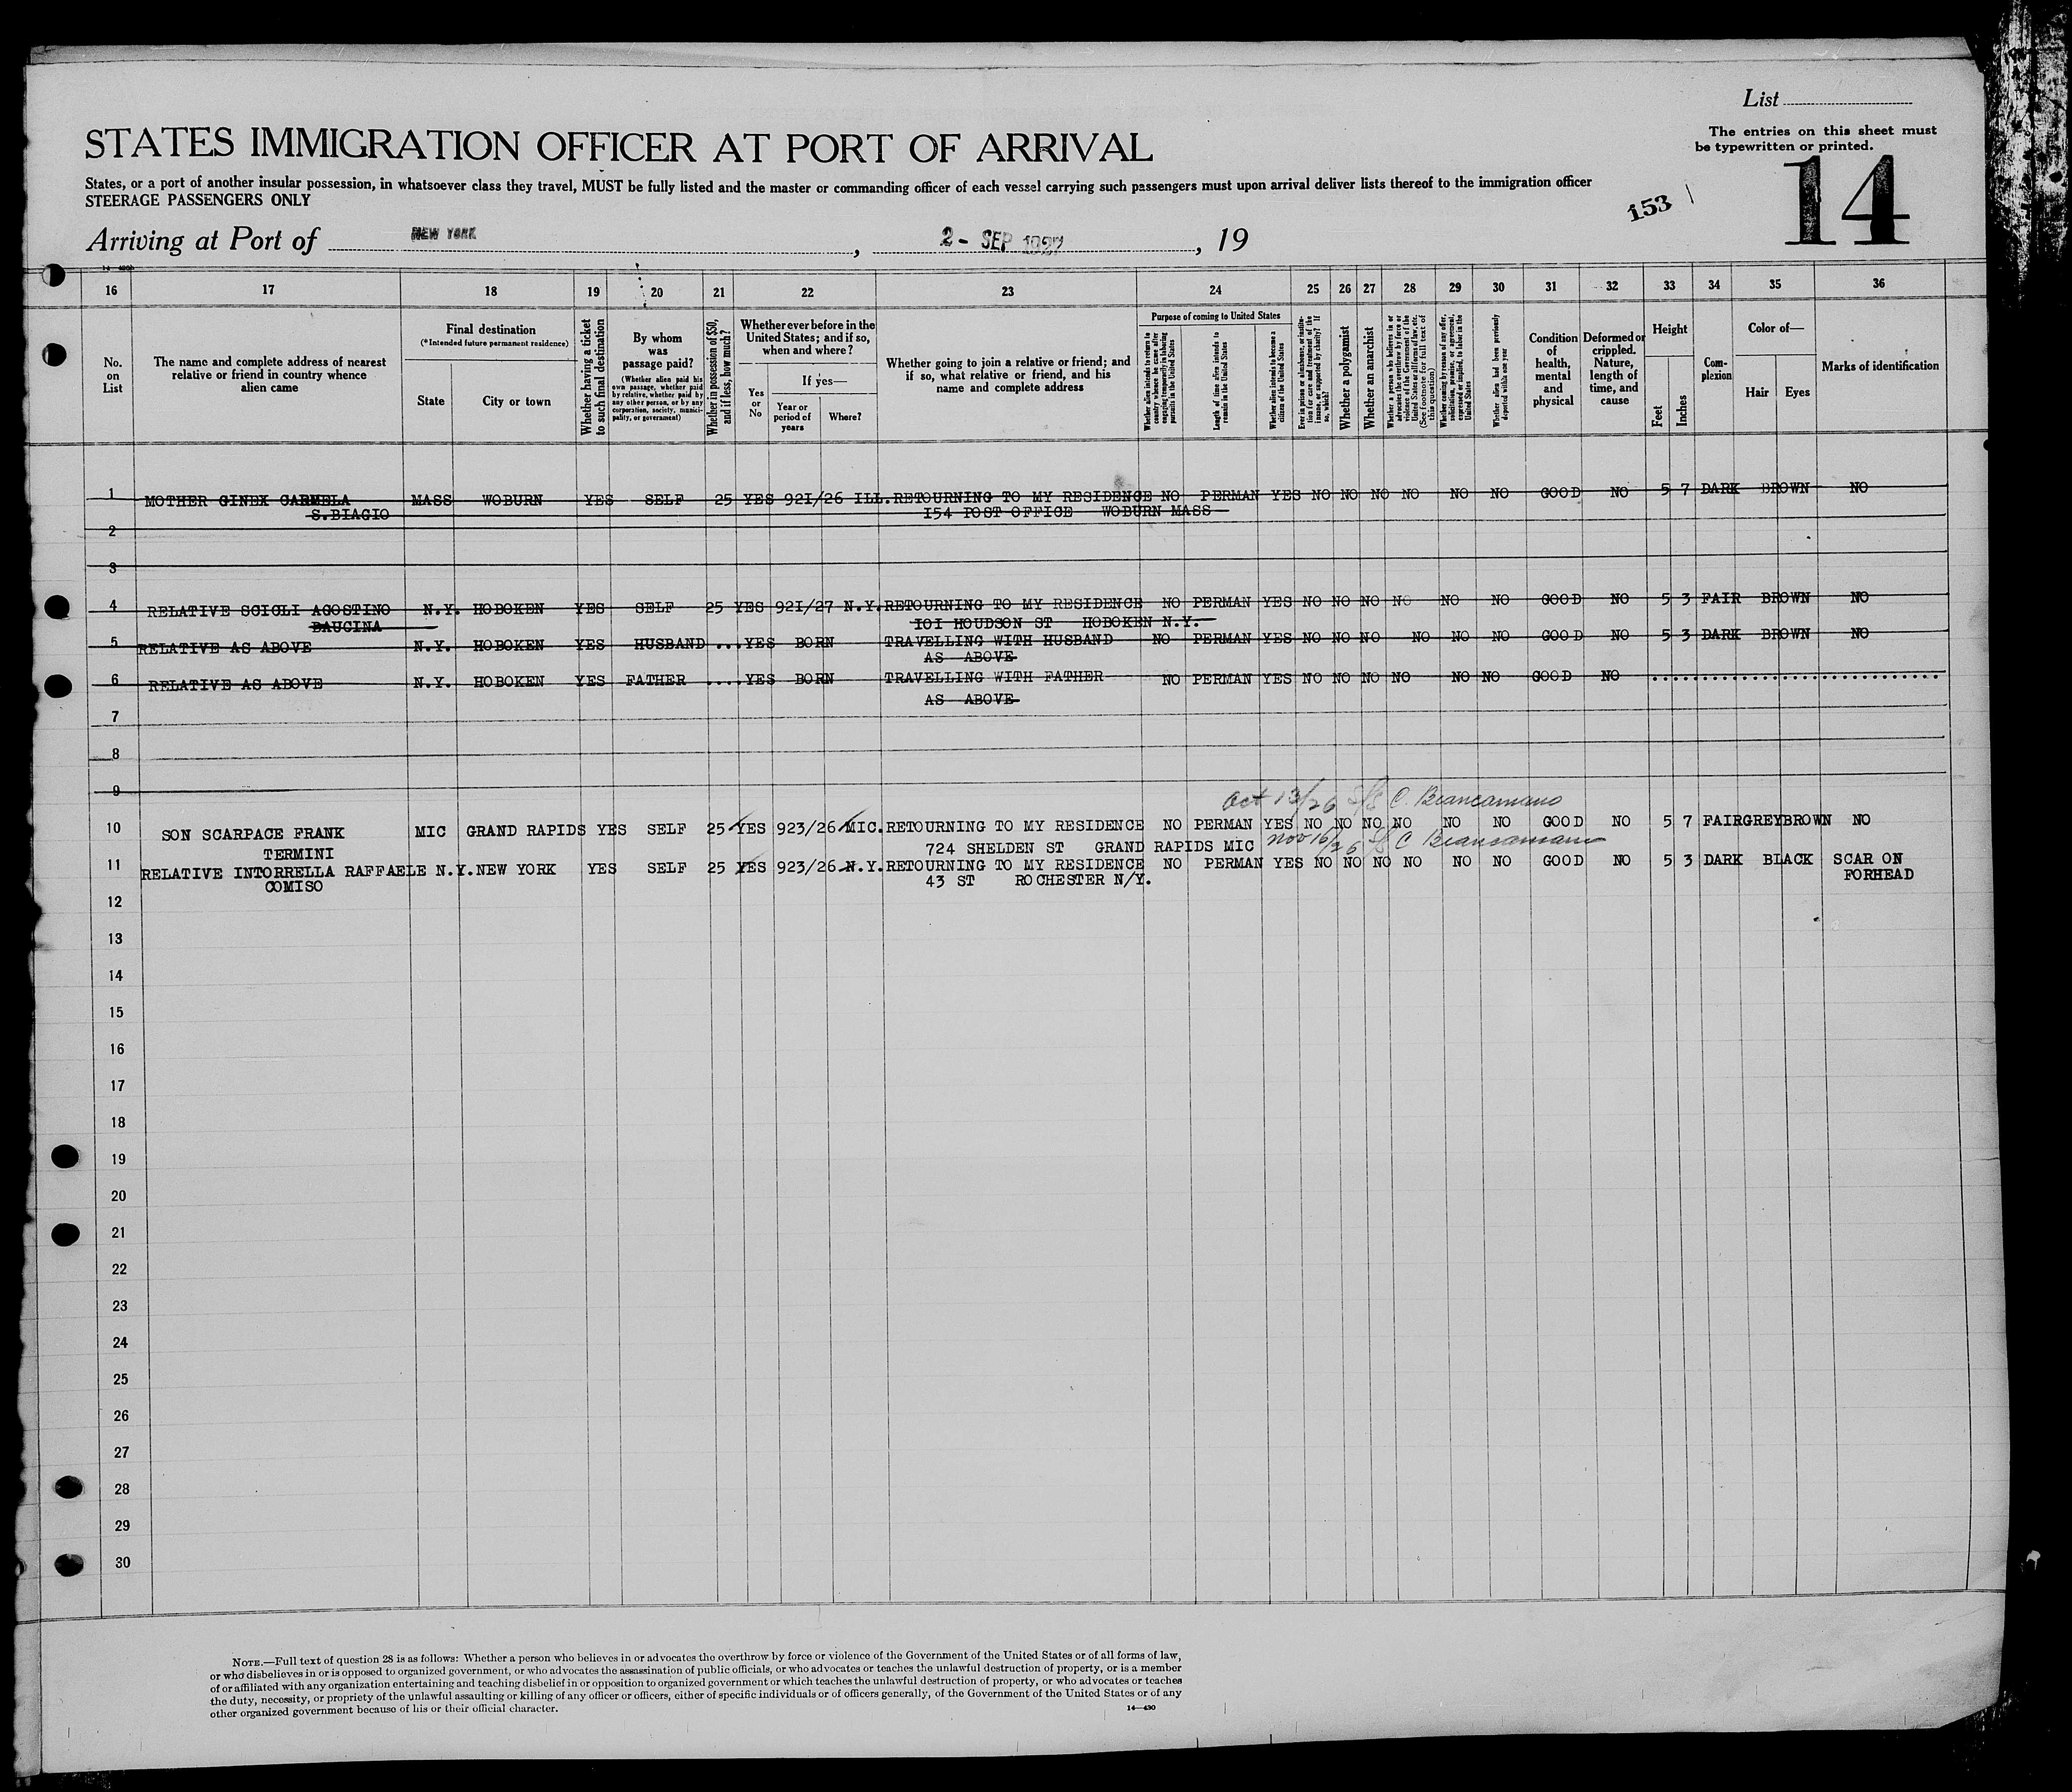 List
The entries on this sheet must
be typewritten or printed.
STATES IMMIGRATION OFFICER AT PORT OF ARRIVAL
14
States, or a port of another insular possession, in whatsoever class they travel, MUST be fully listed and the master or commanding officer of each vessel carrying such passengers must upon arrival deliver lists thereof to the immigration officer
STEERAGE PASSENGERS ONLY
153
Arriving at Port of NEW YORK, 2 - SEP 1927, 19
16 17 18 19 20 21 22 23 24 25 26 27 28 29 30 31 32 33 34 35 36
No. on List
The name and complete address of nearest
relative or friend in country whence
alien came
Final destination
(*Intended future permanent residence)
State
City or town
Whether having a ticket
to such final destination
By whom
was
passage paid?
(Whether alien paid his
own passage, whether paid
by relative, whether paid by
any other person, or by any
corporation, society, munici-
pality, or government)
Whether in possession of $50,
and if less, how much?
Whether ever before in the
United States; and if so,
when and where?
Yes
or
No
If yes—
Year or
period of
years
Where?
Whether going to join a relative or friend; and
if so, what relative or friend, and his
name and complete address
Purpose of coming to United States
Whether alien intends to return to
country whence he came after
engaging temporarily in laboring
pursuits in the United States
Length of time alien intends to
remain in the United States
Whether alien intends to become a
citizen of the United States
Ever in prison or almshouse, or institu-
tion for care and treatment of the
insane, or supported by charity? If
so, which?
Whether a polygamist
Whether an anarchist
Whether a person who believes in or
advocates the overthrow by force or
violence of the Government of the
United States or all forms of law, etc.
(See footnote for full text of
this question)
Whether coming by reason of any offer,
solicitation, promise, or agreement,
expressed or implied, to labor in the
United States
Whether alien had been previously
deported within one year
Condition
of
health,
mental
and
physical
Deformed or
crippled.
Nature,
length of
time, and
cause
Height
Feet
Inches
Com-
plexion
Color of—
Hair
Eyes
Marks of identification
1 MOTHER GINEX CARMELA MASS WOBURN YES SELF 25 YES 921/26 ILL. RETOURNING TO MY RESIDENCE NO PERMAN YES NO NO NO NO NO NO GOOD NO 5 7 DARK BROWN NO
S.BIAGIO I54 POST OFFICE WOBURN MASS
2
3
4 RELATIVE SCIGLI AGOSTINO N.Y. HOBOKEN YES SELF 25 YES 921/27 N.Y. RETOURNING TO MY RESIDENCE NO PERMAN YES NO NO NO NO NO NO GOOD NO 5 3 FAIR BROWN NO
BAUCINA IOI HOUDSON ST HOBOKEN N.Y.
5 RELATIVE AS ABOVE N.Y. HOBOKEN YES HUSBAND ... YES BORN TRAVELLING WITH HUSBAND NO PERMAN YES NO NO NO NO NO NO GOOD NO 5 3 DARK BROWN NO
AS ABOVE
6 RELATIVE AS ABOVE N.Y. HOBOKEN YES FATHER .... YES BORN TRAVELLING WITH FATHER NO PERMAN YES NO NO NO NO NO NO GOOD NO
AS ABOVE
7
8
9
Oct 13/26 S/S C. Biancamano
10 SON SCARPACE FRANK MIC GRAND RAPIDS YES SELF 25 YES 923/26 MIC. RETOURNING TO MY RESIDENCE NO PERMAN YES NO NO NO NO NO NO GOOD NO 5 7 FAIR GREY BROWN NO
TERMINI 724 SHELDEN ST GRAND RAPIDS MIC Nov 16/26 S/S C Biancamano
11 RELATIVE INTORRELLA RAFFAELE N.Y. NEW YORK YES SELF 25 YES 923/26 N.Y. RETOURNING TO MY RESIDENCE NO PERMAN YES NO NO NO NO NO NO GOOD NO 5 3 DARK BLACK SCAR ON
COMISO 43 ST ROCHESTER N/Y. FORHEAD
12
13
14
15
16
17
18
19
20
21
22
23
24
25
26
27
28
29
30
NOTE.—Full text of question 28 is as follows: Whether a person who believes in or advocates the overthrow by force or violence of the Government of the United States or of all forms of law,
or who disbelieves in or is opposed to organized government, or who advocates the assassination of public officials, or who advocates or teaches the unlawful destruction of property, or is a member
of or affiliated with any organization entertaining and teaching disbelief in or opposition to organized government or which teaches the unlawful destruction of property, or who advocates or teaches
the duty, necessity, or propriety of the unlawful assaulting or killing of any officer or officers, either of specific individuals or of officers generally, of the Government of the United States or of any
other organized government because of his or their official character.
14—430